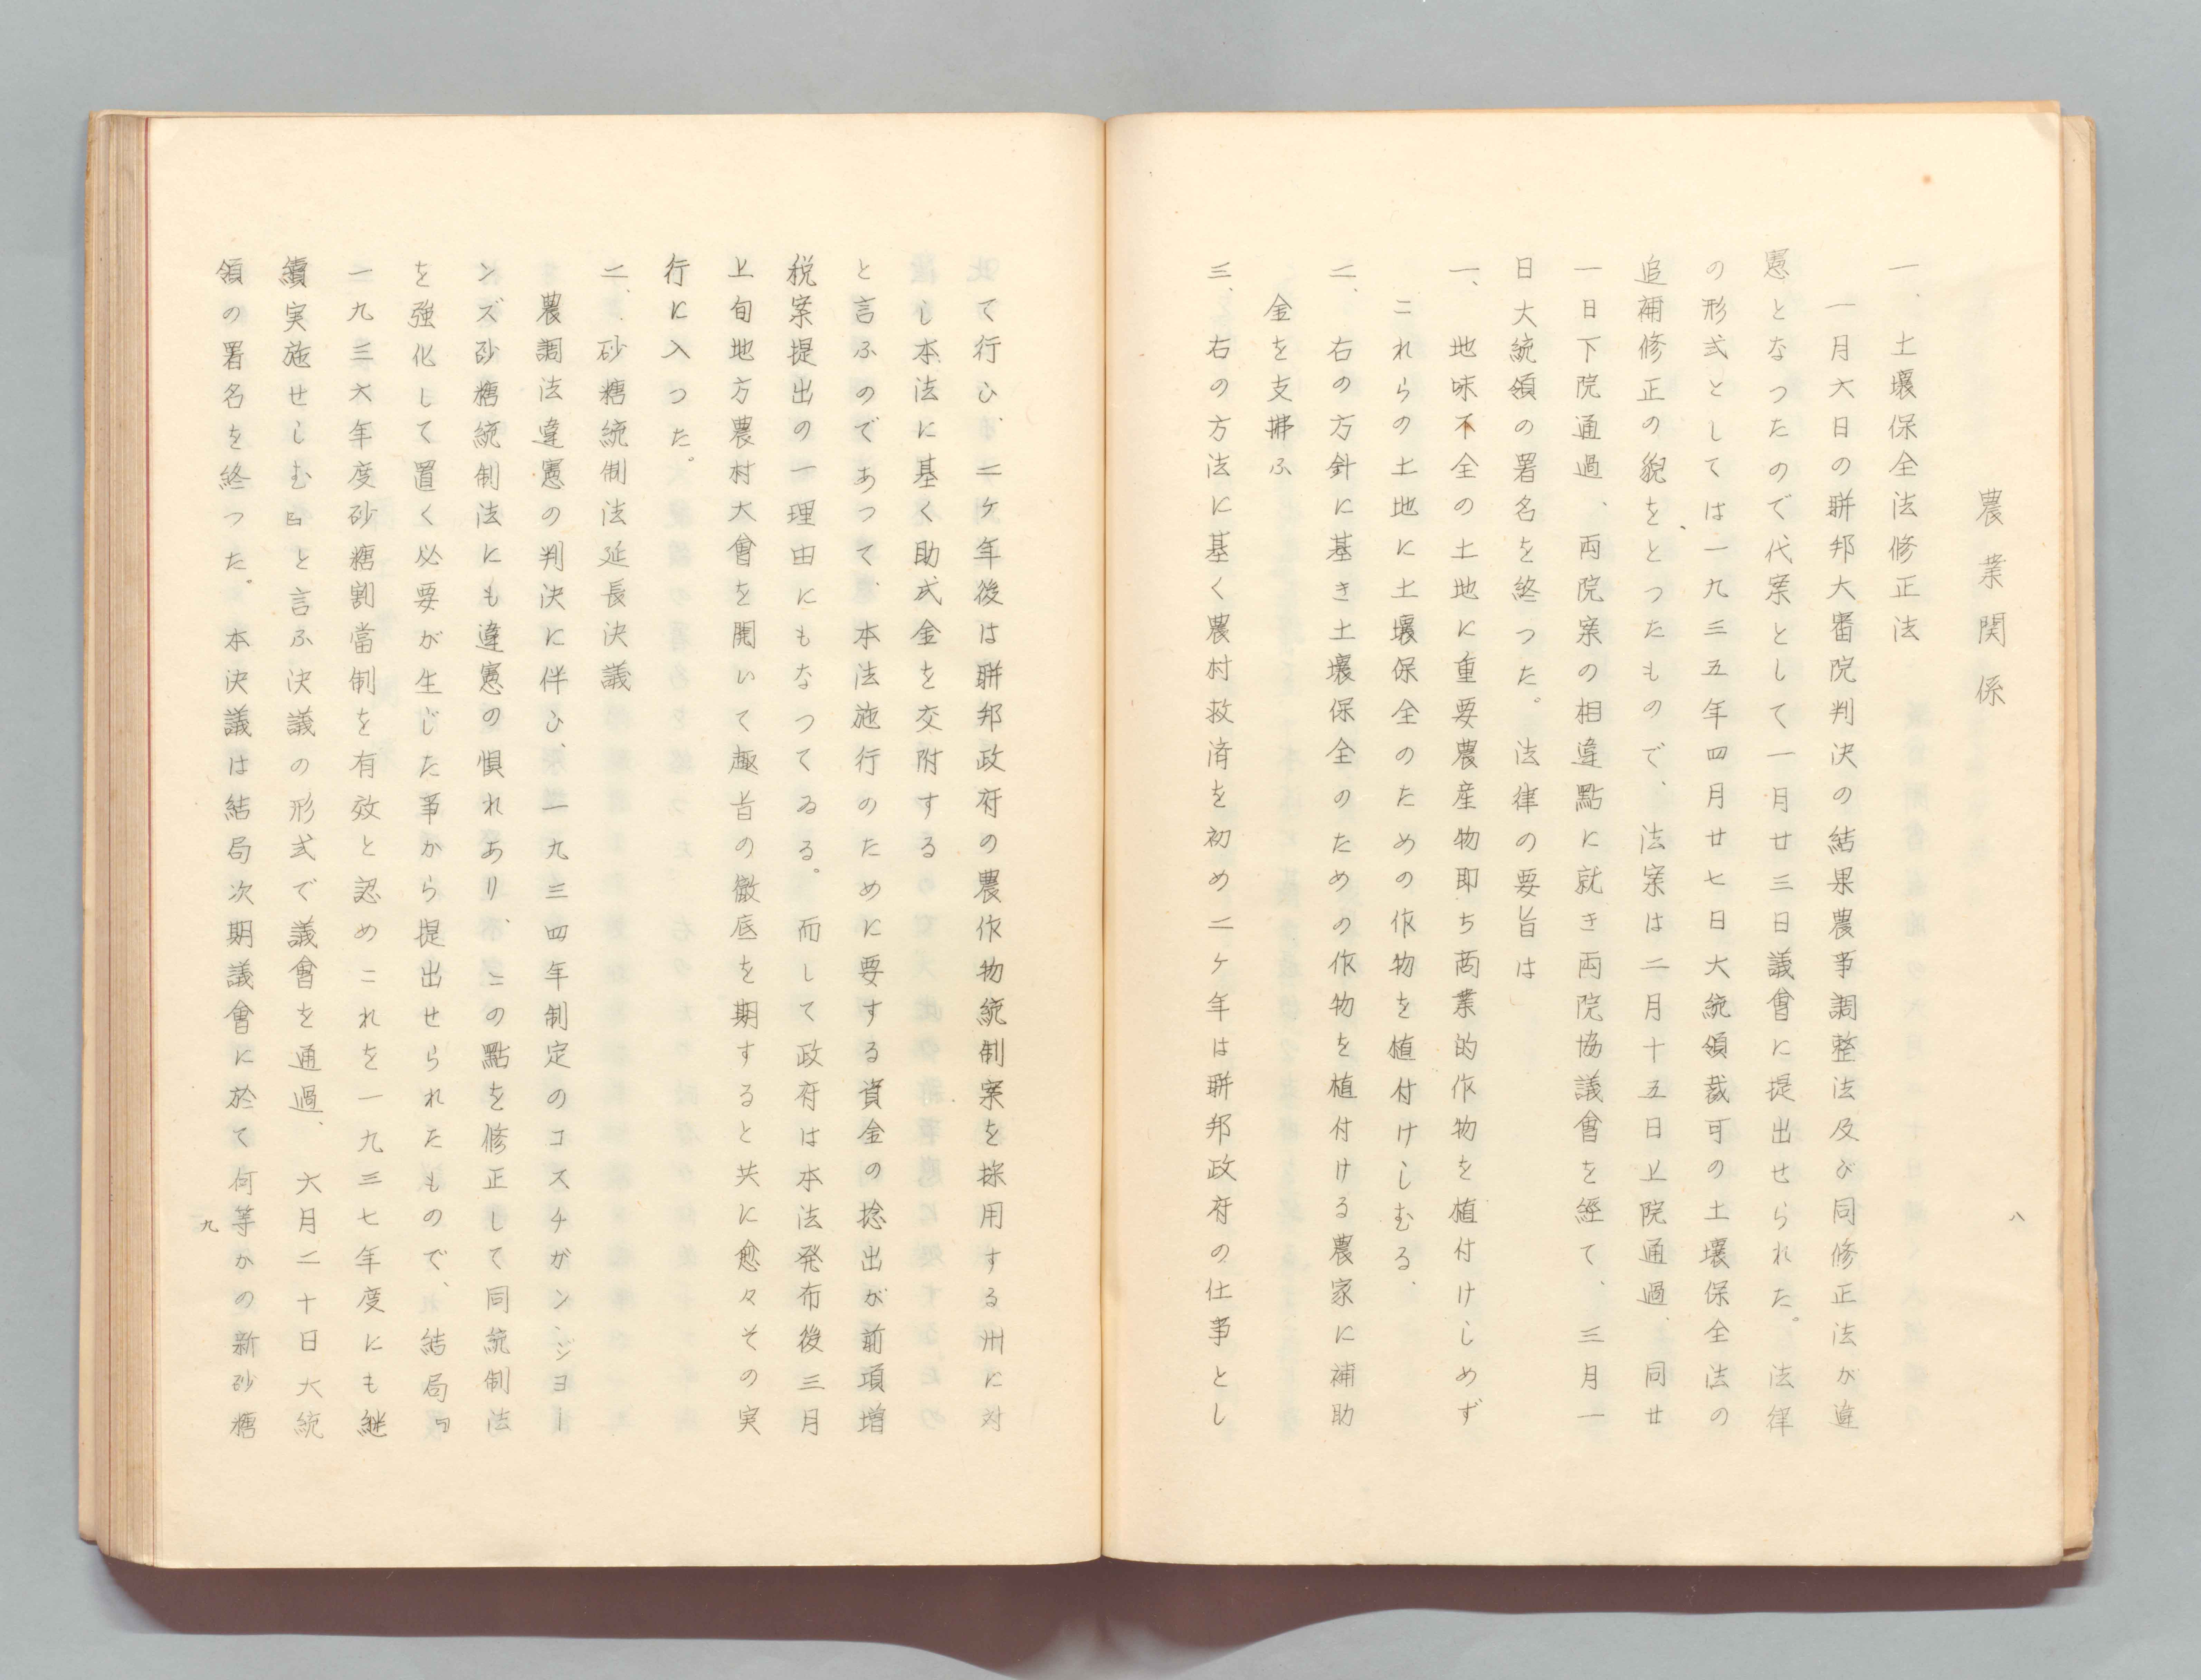 農業関係
一、土壤保全法修正法
一月六日の聯邦大審院判決の結果農事調整法及び同修正法が違
憲となつたので代案として一月廿三日議會に提出せられた。法律
の形式としては、一九三五年四月廿七日大統領裁可の土壤保全法の
追補修正の貌をとつたもので、法案は二月十五日上院通過、同廿
一日下院通過、両院案の相違點に就き両院協議會を經て、三月一
日大統領の署名を終つた。法律の要旨は
一、地味不全の土地に重要農産物即ち商業的作物を植付けしめず
これらの土地に土壤保全のための作物を植付けしむる、
二、右の方針に基き土壤保全のための作物を植付ける農家に補助
金を支拂ふ
三、右の方法に基く農村救済を初め二ヶ年は聯邦政府の仕事とし
八
て行ひ、二ヶ年後は聯邦政府の農作物統制案を採用する州に対
し本法に基く助成金を交附する
と言ふのであつて、本法施行のために要する資金の捻出が前項増
税案提出の一理由にもなつてゐる。而して政府は本法発布後三月
上旬地方農村大會を開いて趣旨の徹底を期すると共に愈々その実
行に入つた。
二、砂糖統制法延長決議
農調法違憲の判決に伴ひ、一九三四年制定のコスチガン、ジヨー
ンズ砂糖統制法にも違憲の惧れあり、この點を修正して同統制法
を強化して置く必要が生じた事から提出せられたもので、結局「
一九三六年度砂糖割當制を有效と認めこれを一九三七年度にも継
續実施せしむ」と言ふ決議の形式で議會を通過、六月二十日大統
領の署名を終つた。本決議は結局次期議會に於て何等かの新砂糖
九